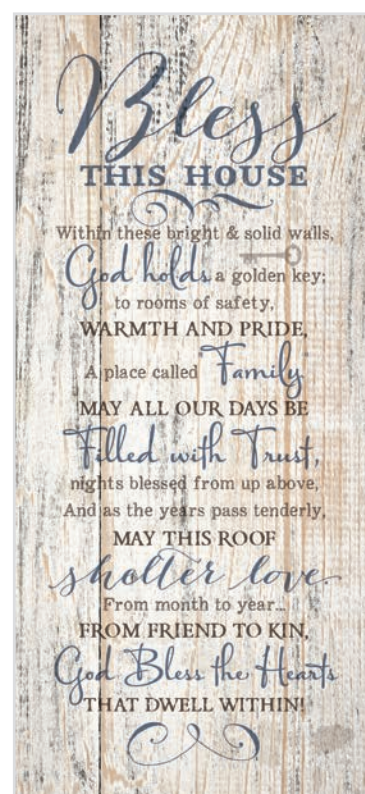 Bless
THIS HOUSE
Within these bright & solid walls,
God holds a golden key;
to rooms of safety,
WARMTH AND PRIDE,
A place called Family
MAY ALL OUR DAYS BE
Filled with Trust,
nights blessed from up above,
And as the years pass tenderly,
MAY THIS ROOF
shelter love.
From month to year...
FROM FRIEND TO KIN,
God Bless the Hearts
THAT DWELL WITHIN!